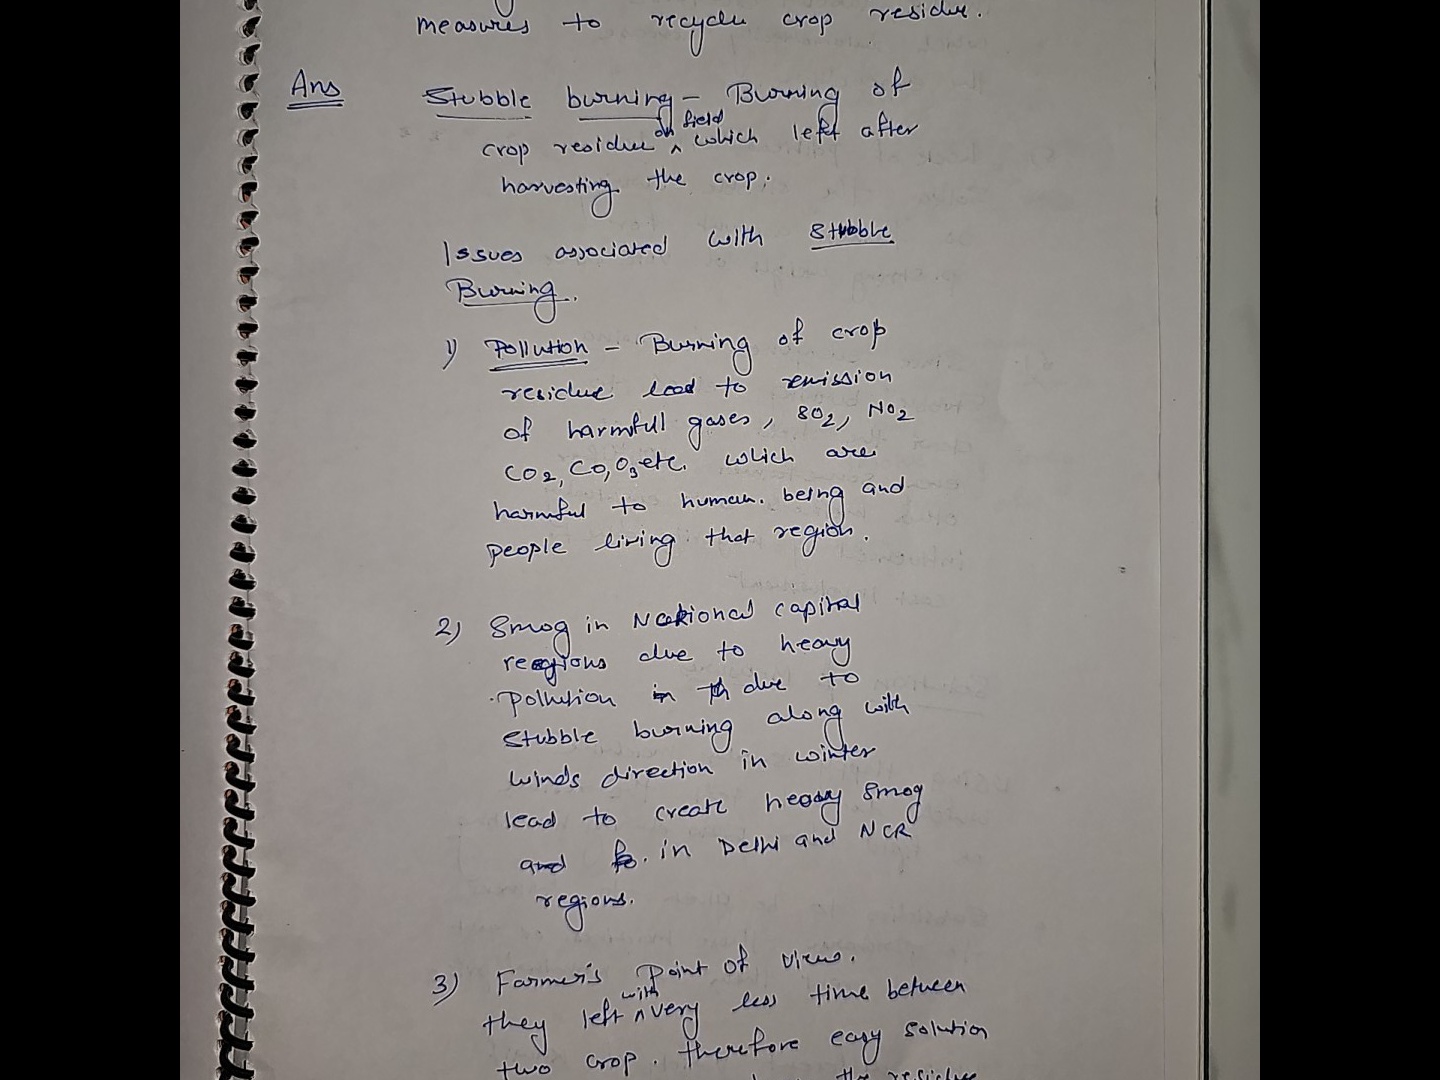 measures to recycle crop residue.
Ans Stubble burning - Burning of
crop residue on field which left after
harvesting the crop.
Issues associated with Stubble
Burning.
1) Pollution - Burning of crop
residue lead to emission
of harmfull gases, SO2, NO2
CO2, CO, O3 etc. which are
harmful to human. being and
people living that region.
2) Smog in National capital
regions due to heavy
pollution in th due to
stubble burning along with
winds direction in winter
lead to create heavy smog
and in Delhi and NCR
regions.
3) Farmer's Point of View.
they left with very less time between
two crop. therefore easy solution
the residue